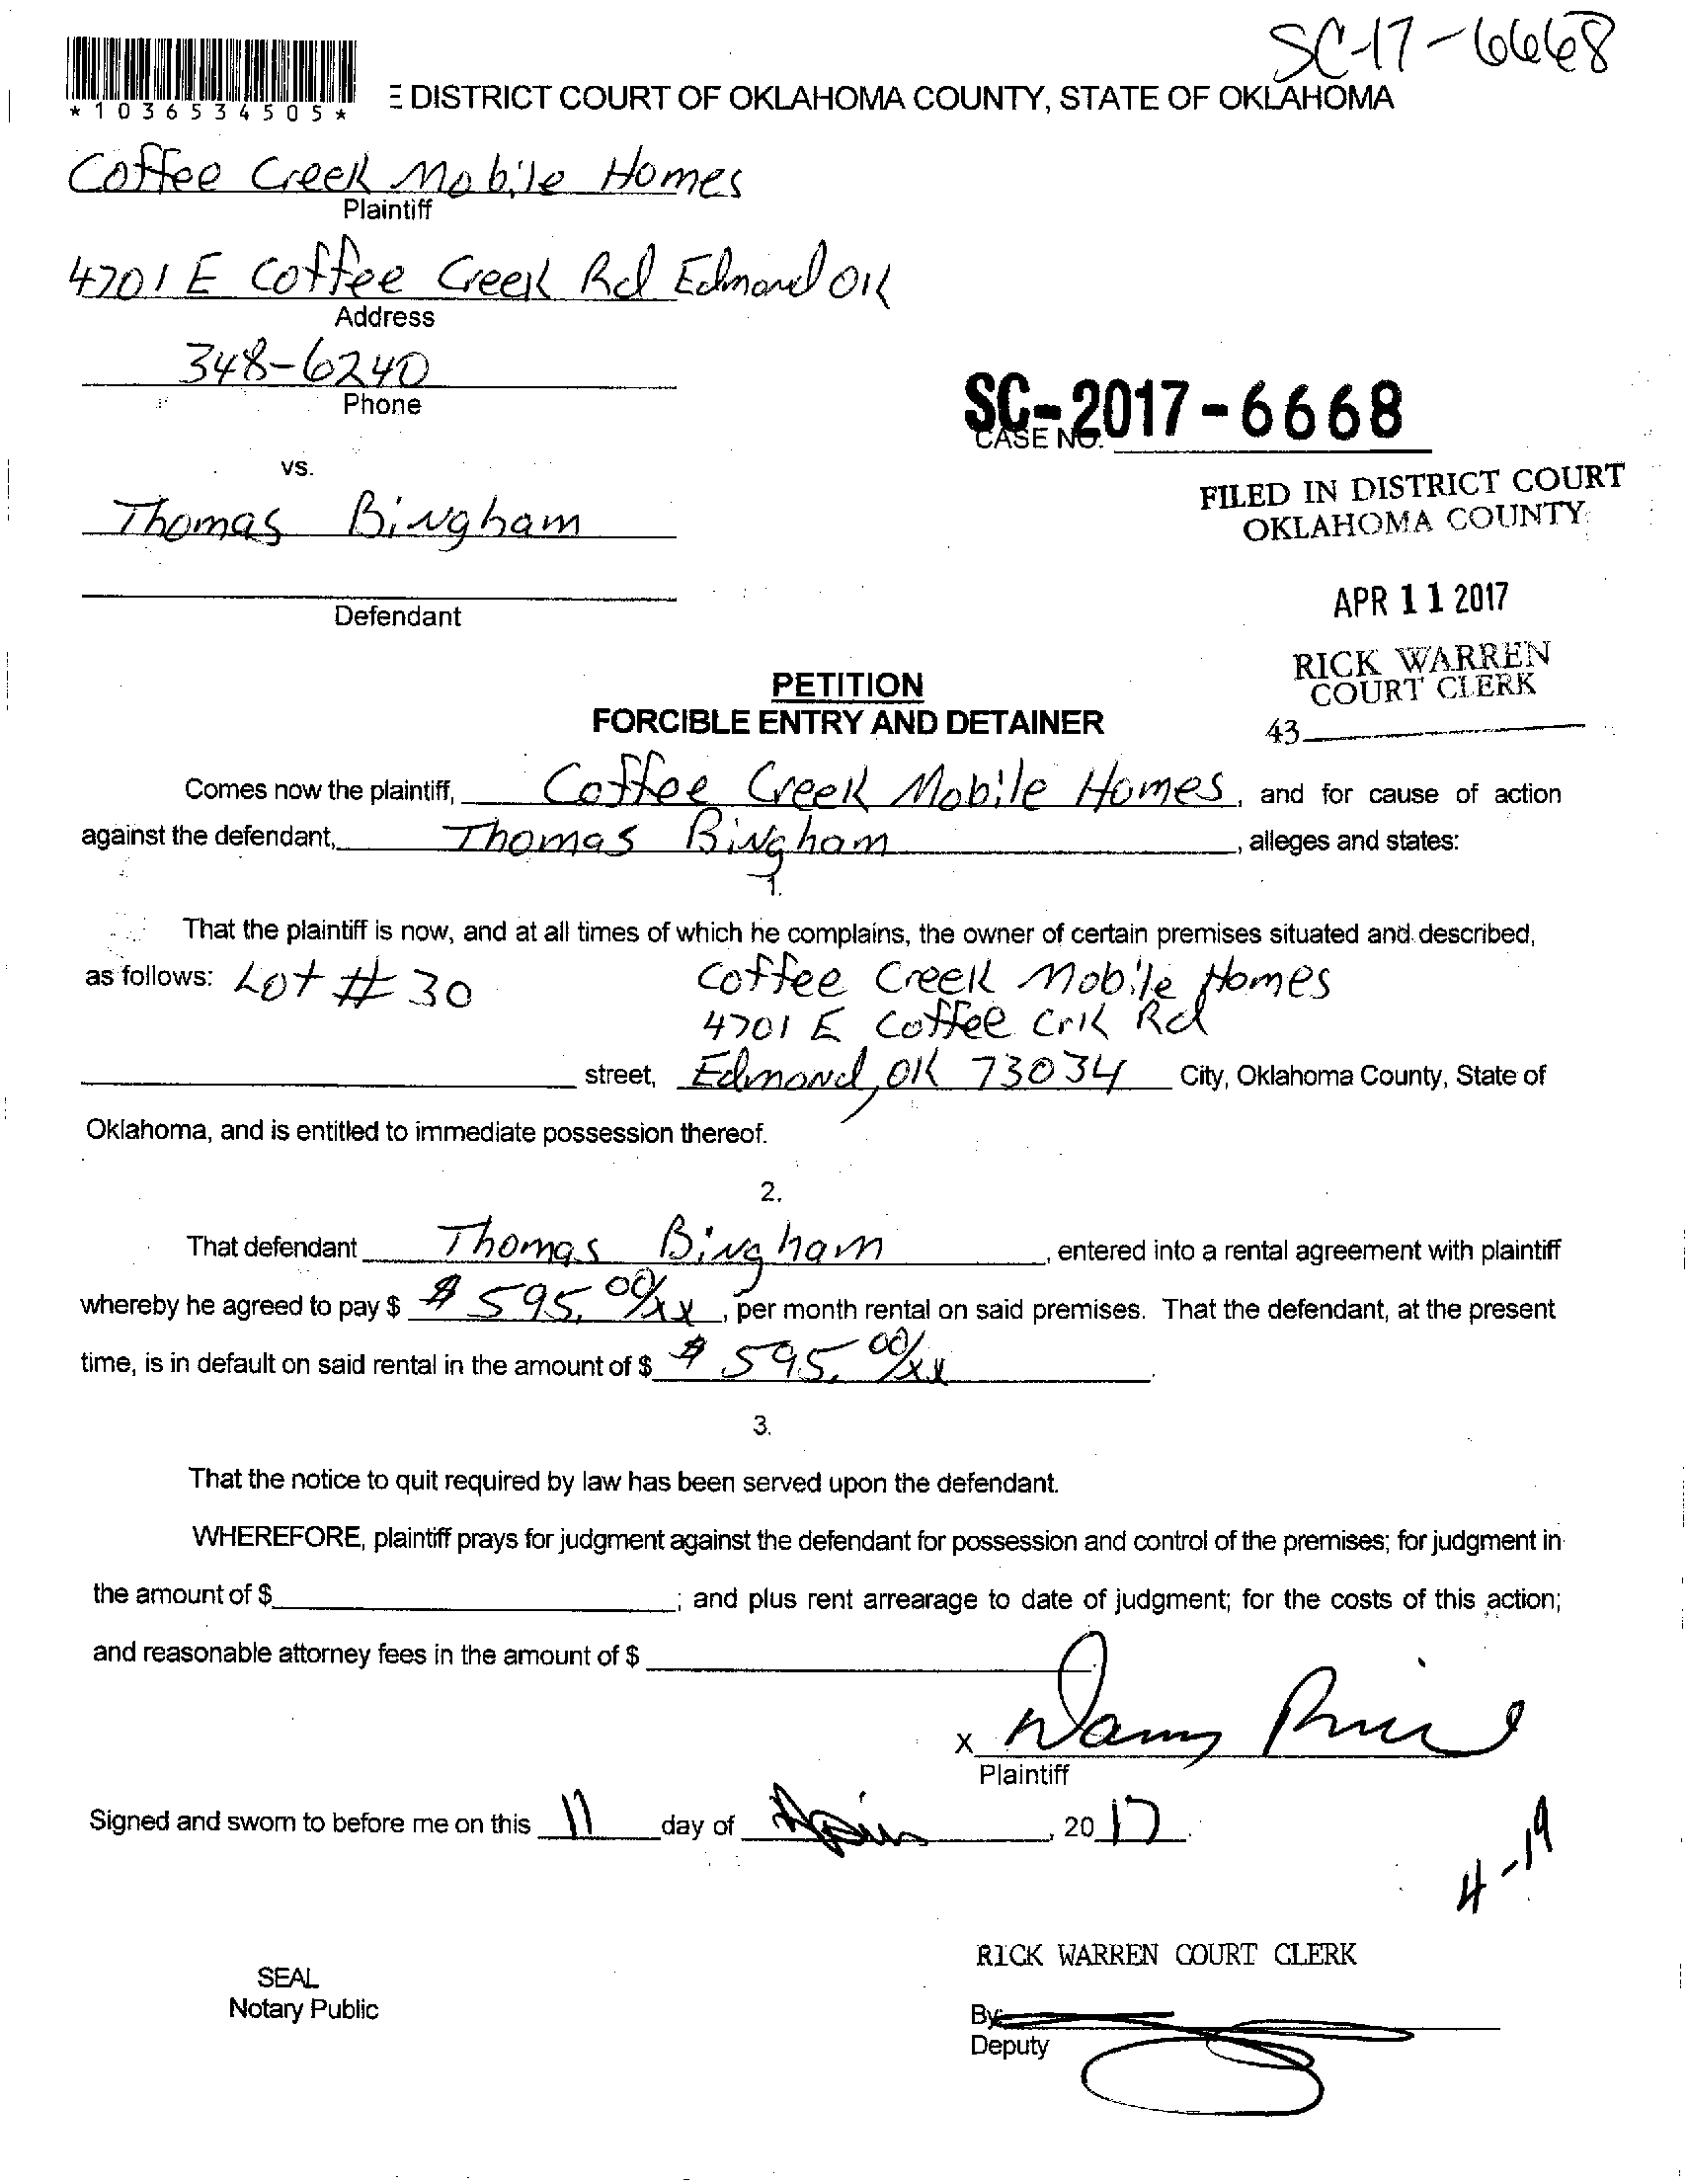 SC-17-6668
*1036534505*
E DISTRICT COURT OF OKLAHOMA COUNTY, STATE OF OKLAHOMA
Coffee Creek Mobile Homes
Plaintiff
4701 E Coffee Creek Rd Edmond OK
Address
348-6240
Phone
SC-2017-6668
CASE NO.
vs.
FILED IN DISTRICT COURT
OKLAHOMA COUNTY
Thomas Bingham
APR 11 2017
Defendant
RICK WARREN
COURT CLERK
43
PETITION
FORCIBLE ENTRY AND DETAINER
Comes now the plaintiff, Coffee Creek Mobile Homes, and for cause of action
against the defendant, Thomas Bingham, alleges and states:
1.
That the plaintiff is now, and at all times of which he complains, the owner of certain premises situated and described,
as follows: Lot # 30 Coffee Creek Mobile Homes
4701 E Coffee Crk Rd
street, Edmond, OK 73034 City, Oklahoma County, State of
Oklahoma, and is entitled to immediate possession thereof.
2.
That defendant Thomas Bingham, entered into a rental agreement with plaintiff
whereby he agreed to pay $ $ 595.00/xx, per month rental on said premises. That the defendant, at the present
time, is in default on said rental in the amount of $ $ 595.00/xx.
3.
That the notice to quit required by law has been served upon the defendant.
WHEREFORE, plaintiff prays for judgment against the defendant for possession and control of the premises; for judgment in
the amount of $ ; and plus rent arrearage to date of judgment; for the costs of this action;
and reasonable attorney fees in the amount of $
x
Plaintiff
Signed and sworn to before me on this 11 day of , 20 17.
4-19
RICK WARREN COURT CLERK
SEAL
Notary Public
By
Deputy